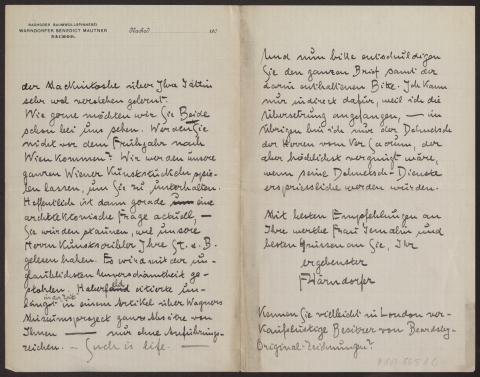 NACHODER BAUMWOLLSPINNEREI
WARNDORFER BENEDICT MAUTNER
NACHOD.
Nachod 190
der Mackintoshs über Ihre Tätin
sehr wol verstehen gelernt.
Wie gerne möchten wir Sie Beide
schon bei uns sehen. Werden Sie
nicht vor dem Frühjahr nach
Wien kommen? Wir werden unsere
ganzen Wiener Kunststückeln spie-
len lassen, um Sie zu unterhalten.
Hoffentlich ist dann gerade eine
architektonische Frage actuell, —
Sie würden staunen, wie unsere
Herrn Kunstscribler Ihre St. u. B.
gelesen haben. Es wird mit der un-
glaublichsten Unverschämtheit ge-
stohlen. Haberfeld citierte un-
längst in einem Artikel über Wagners
Museumsproject ganze Absätze von
Ihnen — nur ohne Anführungs-
zeichen. — Such is life. —
Und nun bitte entschuldigen
Sie den ganzen Brief samt der
darin enthaltenen Bitte. Ich kann
nur indirect dafür, weil ich die
Übersetzung angefangen, — im
Übrigen bin ich nur der Dolmetsch
der Herren vom Ver Sacrum, der
aber höchlichst vergnügt wäre,
wenn seine Dolmetsch-Dienste
erspriessliche werden würden.
Mit besten Empfehlungen an
Ihre werthe Frau Gemalin und
besten Grüssen an Sie, Ihr
ergebenster
FWärndorfer
Kennen Sie vielleicht in London ver-
kaufslustige Besitzer von Beardsley-
Original-Zeichnungen?